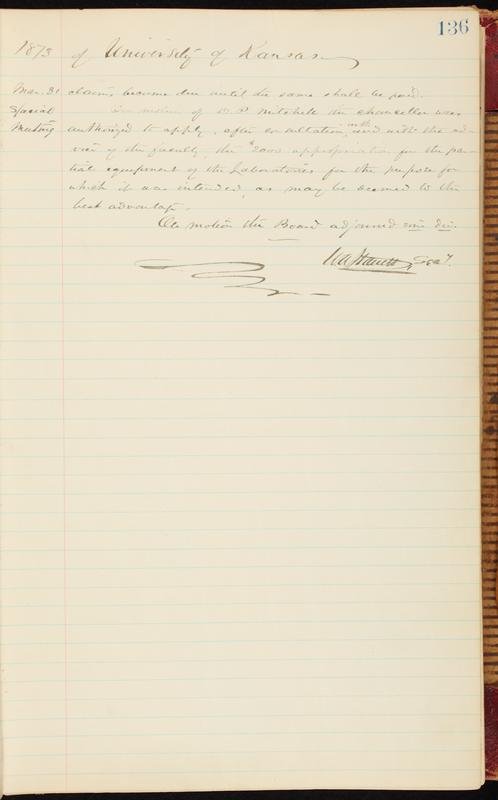 136
1873 of University of Kansas
Mar. 31 claims become due until the same shall be paid.
Special On motion of D P Mitchell the chancellor was
Meeting authorized to apply, after consultation with and with the ad-
vice of the faculty, the $2000 appropriation for the par-
tial equipment of the Laboratories for the purpose for
which it was intended, as may be deemed to the
best advantage.
On motion the Board adjourned sine die.
Secy.